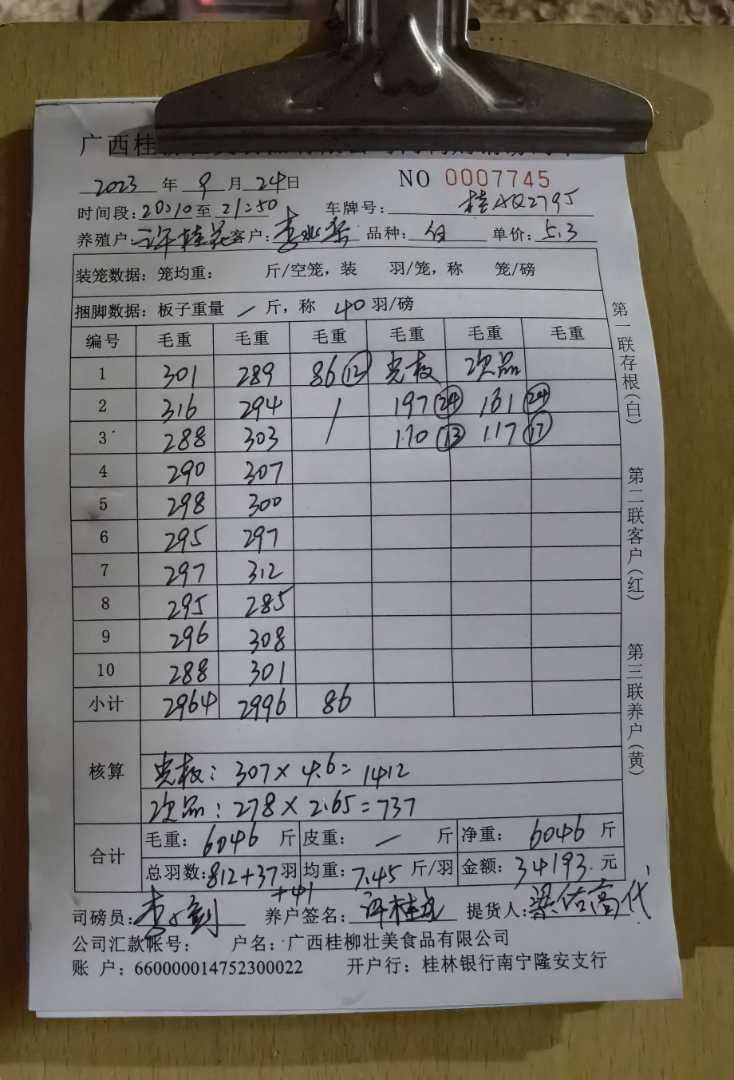 广西桂
2023 年 9 月 24 日 NO 0007745
时间段: 20:10 至 21:50 车牌号: 桂AQ2795
养殖户: 许桂花 客户: 李 品种: 白 单价: 5.3
装笼数据: 笼均重: 斤/空笼, 装 羽/笼, 称 笼/磅
捆脚数据: 板子重量 — 斤, 称 40 羽/磅
编号 毛重 毛重 毛重 毛重 毛重 毛重
1 301 289 86⑫ 光板 次品
2 316 294 / 197㉔ 161㉔
3 288 303 / 110⑬ 117⑰
4 290 307
5 298 300
6 295 297
7 297 312
8 295 285
9 296 308
10 288 301
小计 2964 2996 86
核算
光板: 307×4.6=1412
次品: 278×2.65=737
合计
毛重: 6046 斤 皮重: — 斤 净重: 6046 斤
总羽数: 812+37 羽 均重: 7.45 斤/羽 金额: 34193. 元
+41
司磅员: 李 养户签名: 许桂花 提货人: 梁佑高代
公司汇款帐号: 户名: 广西桂柳壮美食品有限公司
账 户: 660000014752300022 开户行: 桂林银行南宁隆安支行
第一联存根(白)
第二联客户(红)
第三联养户(黄)